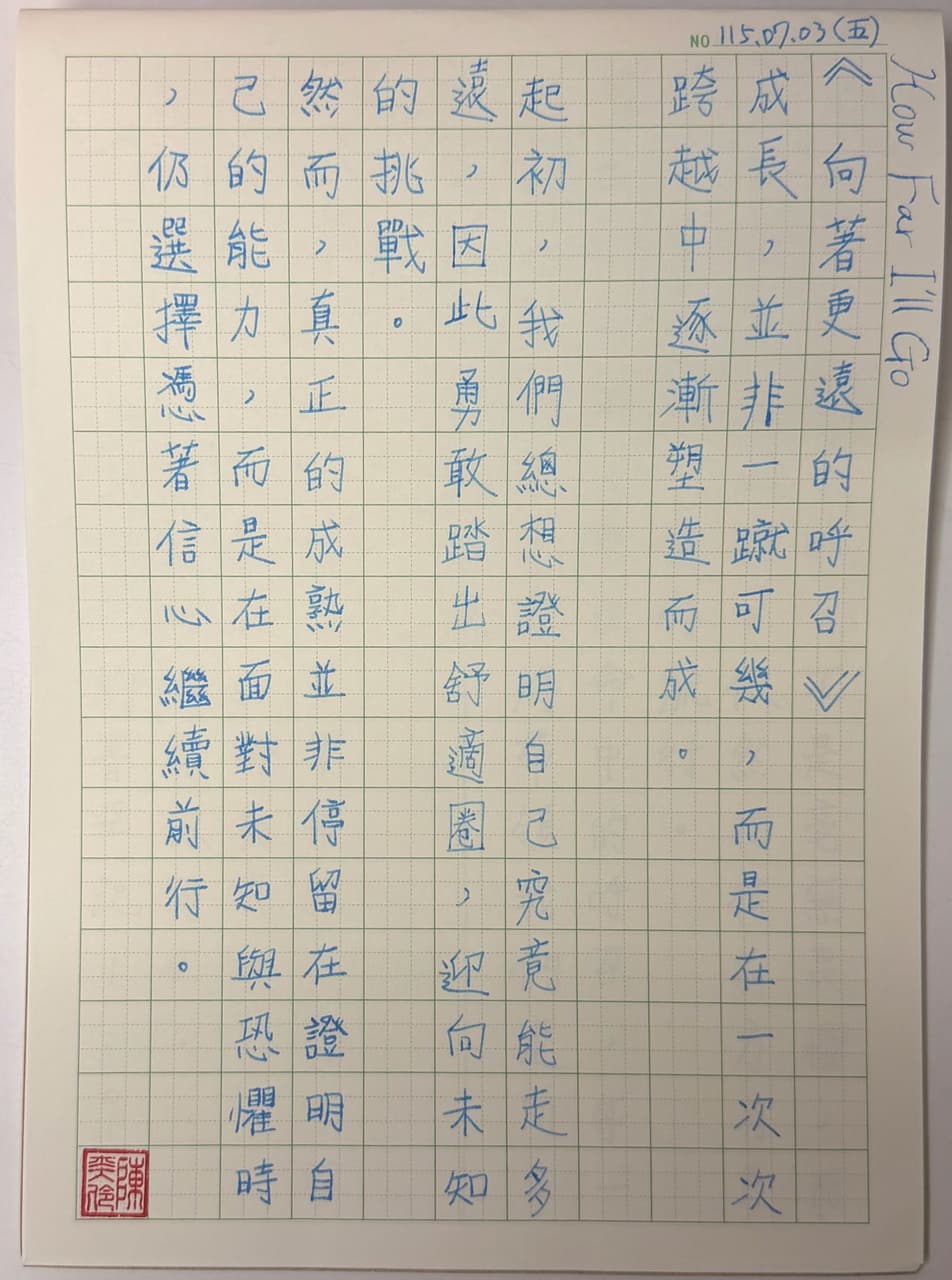 NO 115.07.03(五)
How Far I'll Go
《向著更遠的呼召》
成長，並非一蹴可幾，而是在一次次
跨越中逐漸塑造而成。
起初，我們總想證明自己究竟能走多
遠，因此勇敢踏出舒適圈，迎向未知
的挑戰。
然而，真正的成熟並非停留在證明自
己的能力，而是在面對未知與恐懼時
，仍選擇憑著信心繼續前行。
陳